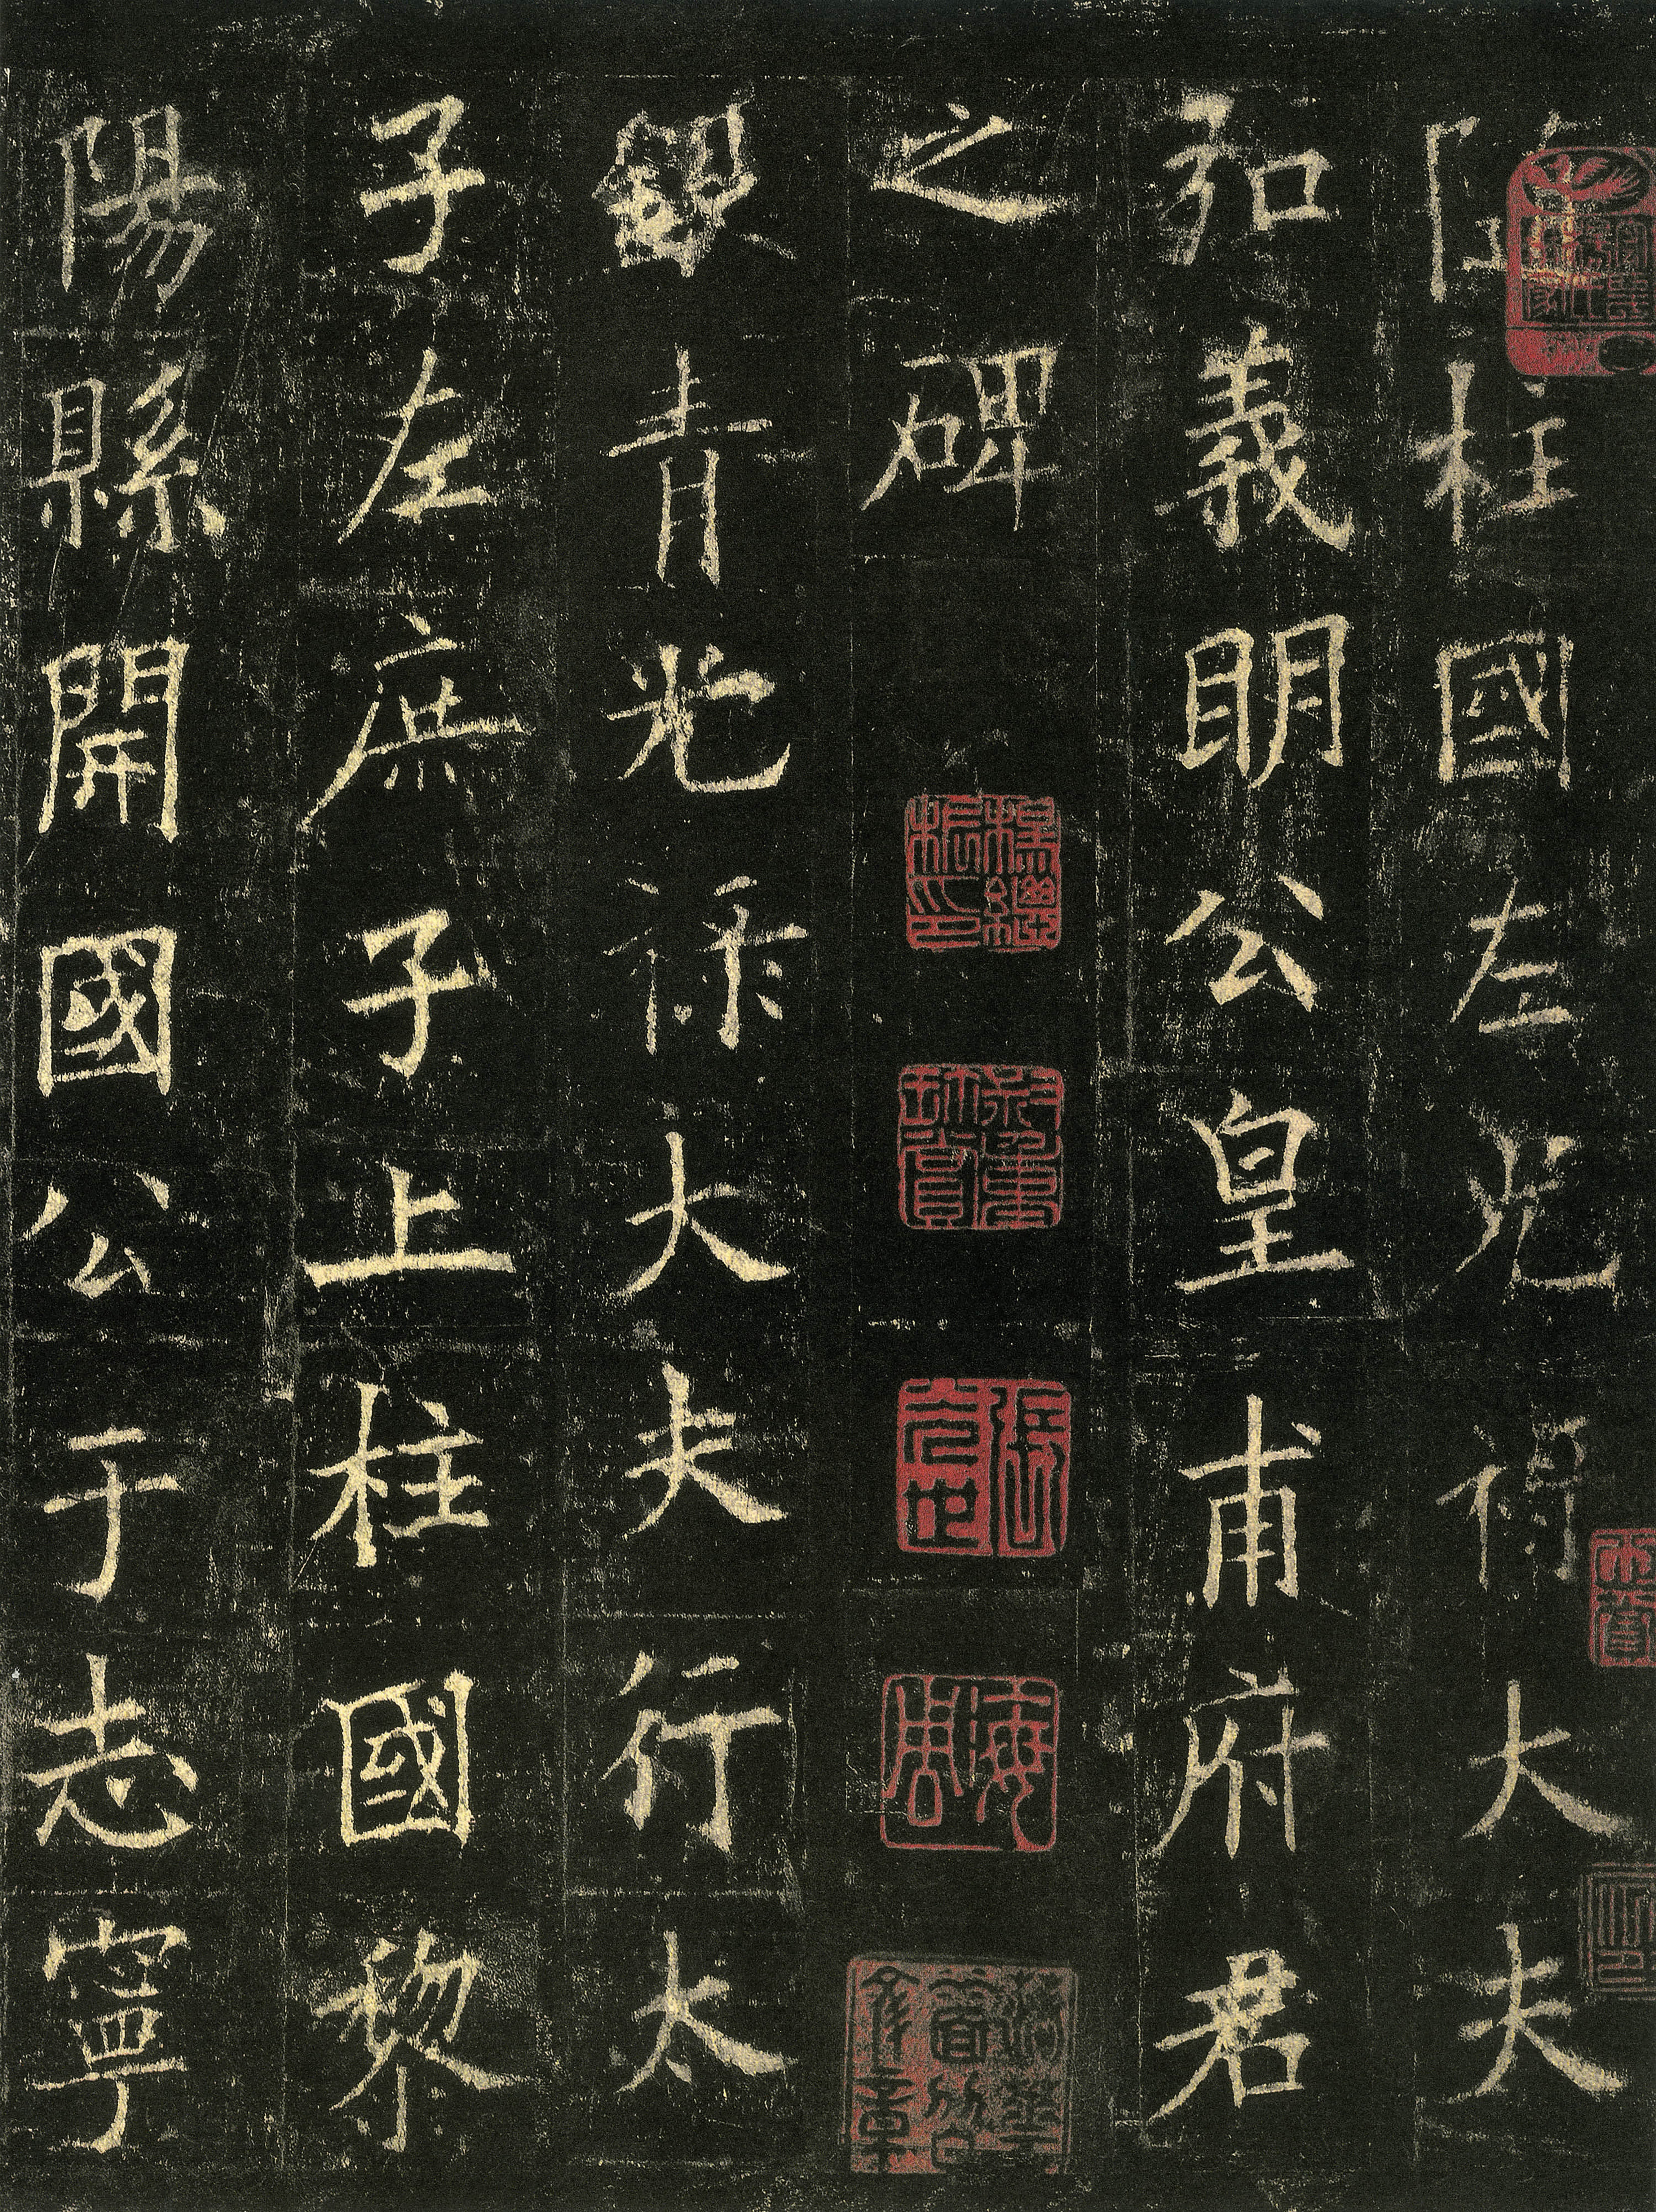 隋柱國左光祿大夫
弘義明公皇甫府君
之碑
銀青光祿大夫行太
子左庶子上柱國黎
陽縣開國公于志寧